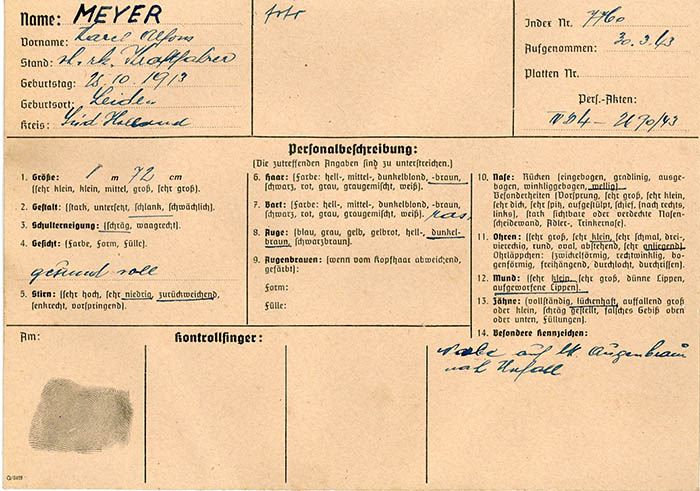 Name: MEYER
Vorname: Karel Alfons
Stand: vl. rk. Kraftfahrer
Geburtstag: 25.10.1913
Geburtsort: Leiden
Kreis: Süd Holland
foto
Index Nr. 7760
Aufgenommen: 30.3.43
Platten Nr.
Pers.-Akten:
IV D4 – 2170/43
Personalbeschreibung:
(Die zutreffenden Angaben sind zu unterstreichen.)
1. Größe: 1 m 72 cm
(sehr klein, klein, mittel, groß, sehr groß).
2. Gestalt: (stark, untersetzt, schlank, schwächlich).
3. Schulterneigung: (schräg, waagrecht).
4. Gesicht: (Farbe, Form, Fülle).
gesund voll
5. Stirn: (sehr hoch, sehr niedrig, zurückweichend,
senkrecht, vorspringend).
6. Haar: (Farbe: hell-, mittel-, dunkelblond, -braun,
schwarz, rot, grau, graugemischt, weiß).
7. Bart: (Farbe: hell-, mittel-, dunkelblond, -braun,
schwarz, rot, grau, graugemischt, weiß). ras.
8. Auge: (blau, grau, gelb, gelbrot, hell-, dunkel-
braun, schwarzbraun).
9. Augenbrauen: (wenn vom Kopfhaar abweichend,
gefärbt):
Form:
Fülle:
10. Nase: Rücken (eingebogen, gradlinig, ausge-
bogen, winkliggebogen, wellig).
Besonderheiten (Vorsprung, sehr groß, sehr klein,
sehr dick, sehr spitz, aufgestülpt, schief, (nach rechts,
links), stark sichtbare oder verdeckte Nasen-
scheidewand, Adler-, Trinkernase).
11. Ohren: (sehr groß, sehr klein, sehr schmal, drei-,
viereckig, rund, oval, abstehend, sehr anliegend)
Ohrläppchen: (zwickelförmig, rechtwinklig, bo-
genförmig, freihängend, durchlocht, durchrissen).
12. Mund: (sehr klein, sehr groß, dünne Lippen,
aufgeworfene Lippen).
13. Zähne: (vollständig, lückenhaft, auffallend groß
oder klein, schräg gestellt, falsches Gebiß oben
oder unten, Füllungen).
14. Besondere Kennzeichen:
Narbe auf lk. Augenbraun
nach Unfall
Am:
Kontrollfinger: